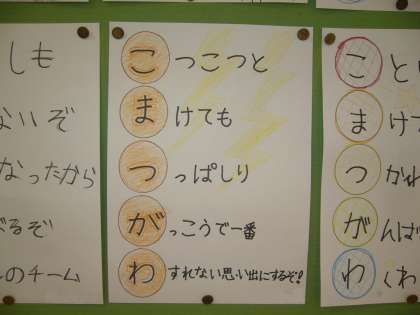 しも
ないぞ
なったから
べるぞ
のチーム
こつこつと
まけても
つっぱしり
がっこうで一番
わすれない思い出にするぞ!
こと
まけて
つかれ
がんば
わくわ